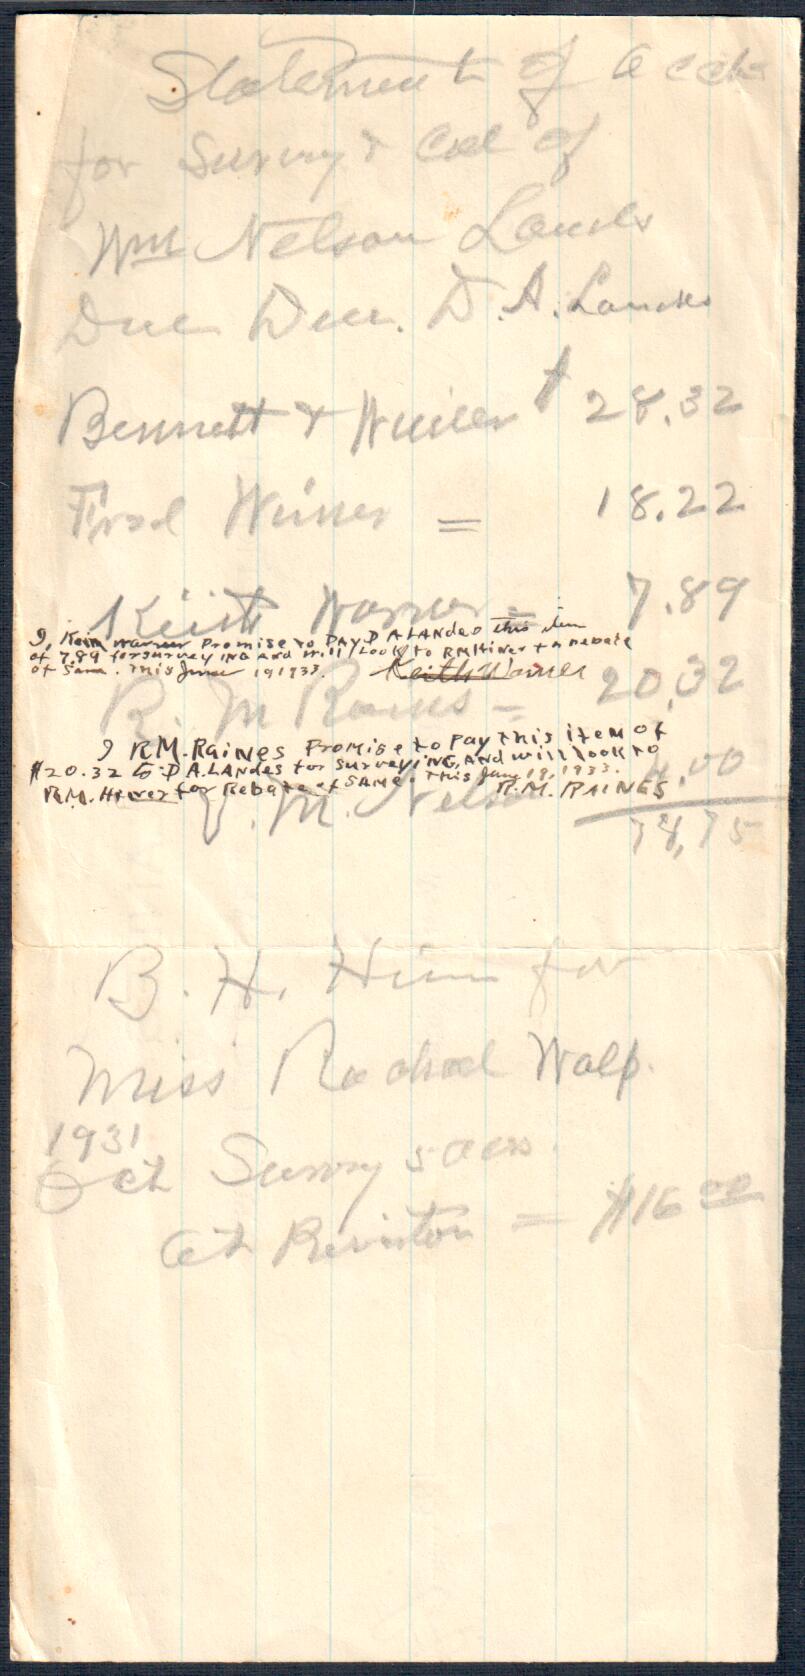 Statement of acct
for Survey & Cal of
Wm Nelson Lands
Due Dec. D. A. Landes
Bennett & $ 28.32
Fred = 18.22
Keith Warner = 7.89
I, Keith Warner Promise to PAY D A LANdes this item
of 7.89 for surveyING and will look to RMHiner for rebate
of Same. This June 19 1933. Keith Warner
R. M Raines = 20.32
I R.M. RaiNes Promise to pay this item of
$20.32 to D.A.LANdes for surveyiNG, ANd will look to
R.M. Hiner for Rebate of SAME. This June 19, 1933.
R.M. RAINES
M. Nelson 4.00
78,75
B. H. Hiner for
Miss Rachael Walp.
1931
Oct Survey 5 acrs.
at = $16 00